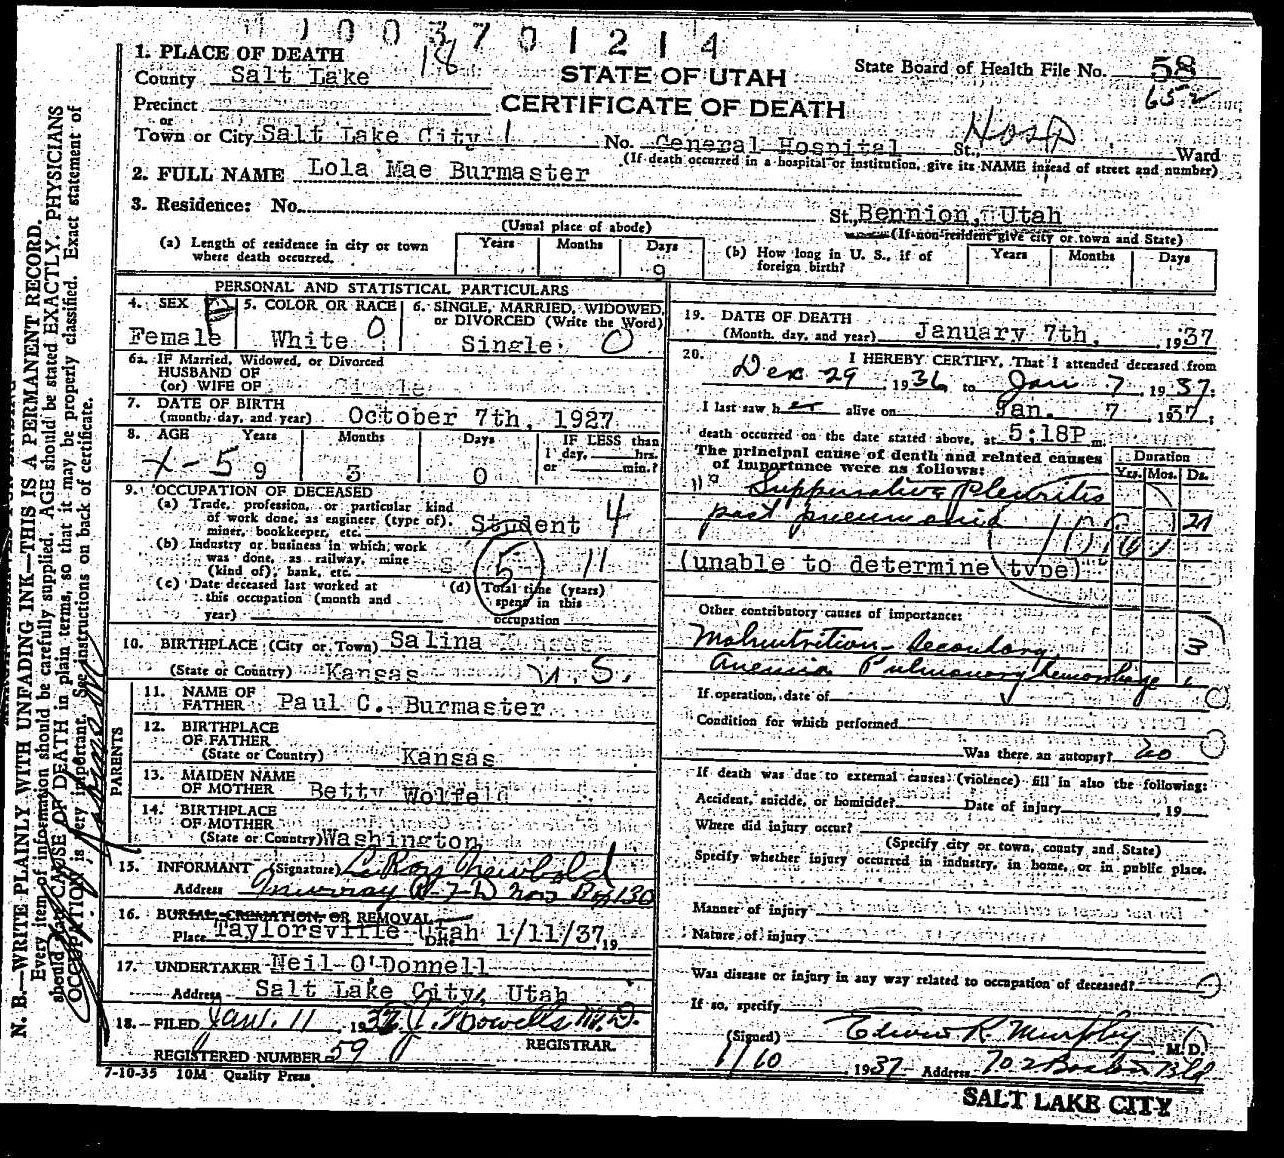 1003701214
1. PLACE OF DEATH
18
County Salt Lake
STATE OF UTAH
CERTIFICATE OF DEATH
State Board of Health File No. 58
65
Precinct
or
Town or City Salt Lake City 1 No. General Hospital St., Hosp Ward
(If death occurred in a hospital or institution, give its NAME instead of street and number)
2. FULL NAME Lola Mae Burmaster
3. Residence: No. St. Bennion, Utah
(Usual place of abode) (If non-resident give city or town and State)
(a) Length of residence in city or town where death occurred. Years Months Days 9
(b) How long in U. S., if of foreign birth? Years Months Days
PERSONAL AND STATISTICAL PARTICULARS
4. SEX Female
5. COLOR OR RACE White 0
6. SINGLE, MARRIED, WIDOWED, or DIVORCED (Write the Word) Single 0
6a. IF Married, Widowed, or Divorced
HUSBAND OF
(or) WIFE OF Single
7. DATE OF BIRTH
(month, day, and year) October 7th, 1927
8. AGE Years Months Days IF LESS than
1 day, hrs.
or min.?
x-5 9 3 0
9. OCCUPATION OF DECEASED
(a) Trade, profession, or particular kind
of work done, as engineer (type of),
miner, bookkeeper, etc. Student 4
(b) Industry or business in which work
was done, as railway, mine
(kind of), bank, etc. 5 11
(c) Date deceased last worked at
this occupation (month and
year)
(d) Total time (years)
spent in this
occupation
10. BIRTHPLACE (City or Town) Salina Kansas
(State or Country) Kansas
PARENTS
11. NAME OF
FATHER Paul C. Burmaster
12. BIRTHPLACE
OF FATHER
(State or Country) Kansas
13. MAIDEN NAME
OF MOTHER Betty
14. BIRTHPLACE
OF MOTHER
(State or Country) Washington
15. INFORMANT (Signature) LeRoy Newbold
Address Murray R.F.D. No 3 Box 130
16. BURIAL, CREMATION, OR REMOVAL
Place Taylorsville Utah Date 1/11/37 19
17. UNDERTAKER Neil O'Donnell
Address Salt Lake City, Utah
18. FILED Jan. 11, 1937 M.D.
REGISTRAR.
REGISTERED NUMBER 59
7-10-35 10M Quality Press
19. DATE OF DEATH
(Month, day, and year) January 7th, 1937
20. I HEREBY CERTIFY, That I attended deceased from
Dec 29, 1936 to Jan 7, 1937;
I last saw her alive on Jan. 7, 1937;
death occurred on the date stated above, at 5:18P m.
The principal cause of death and related causes
of importance were as follows:
Duration
Yrs. Mos. Ds.
Suppurative Pleuritis
post pneumonia 21
(unable to determine type)
Other contributory causes of importance:
Malnutrition - Secondary 3
Anemia Pulmonary hemorrhage 1
If operation, date of
Condition for which performed
Was there an autopsy? no
If death was due to external causes (violence) fill in also the following:
Accident, suicide, or homicide? Date of injury , 19
Where did injury occur?
(Specify city or town, county and State)
Specify whether injury occurred in industry, in home, or in public place.
Manner of injury
Nature of injury
Was disease or injury in any way related to occupation of deceased?
If so, specify
(Signed) Edwin R. Murphy M.D.
1/10 1937 Address 702 Boston Bld
SALT LAKE CITY
N. B.—WRITE PLAINLY WITH UNFADING INK—THIS IS A PERMANENT RECORD.
Every item of information should be carefully supplied. AGE should be stated EXACTLY. PHYSICIANS
should state CAUSE OF DEATH in plain terms, so that it may be properly classified. Exact statement of
OCCUPATION is very important. See instructions on back of certificate.